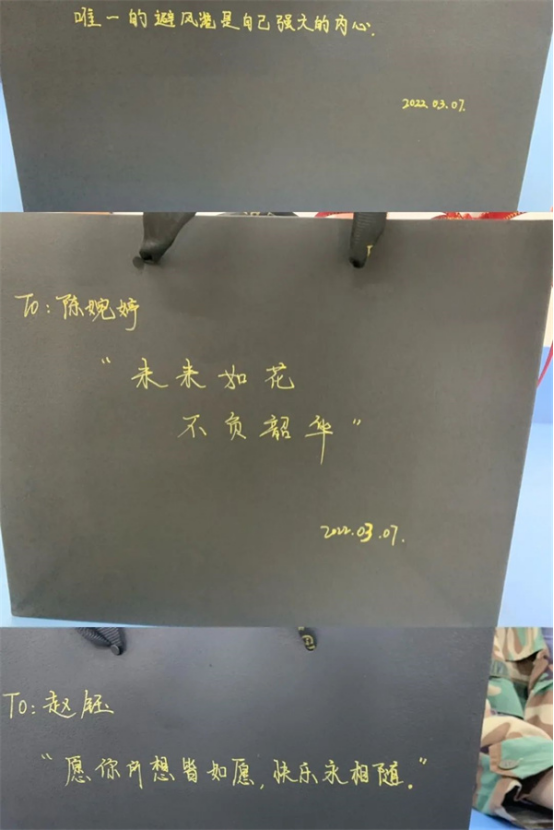 唯一的避风港是自己强大的内心.
2022.03.07.
To: 陈婉婷
"未来如花
不负韶华"
2022.03.07.
To: 赵钰
"愿你所想皆如愿,快乐永相随."